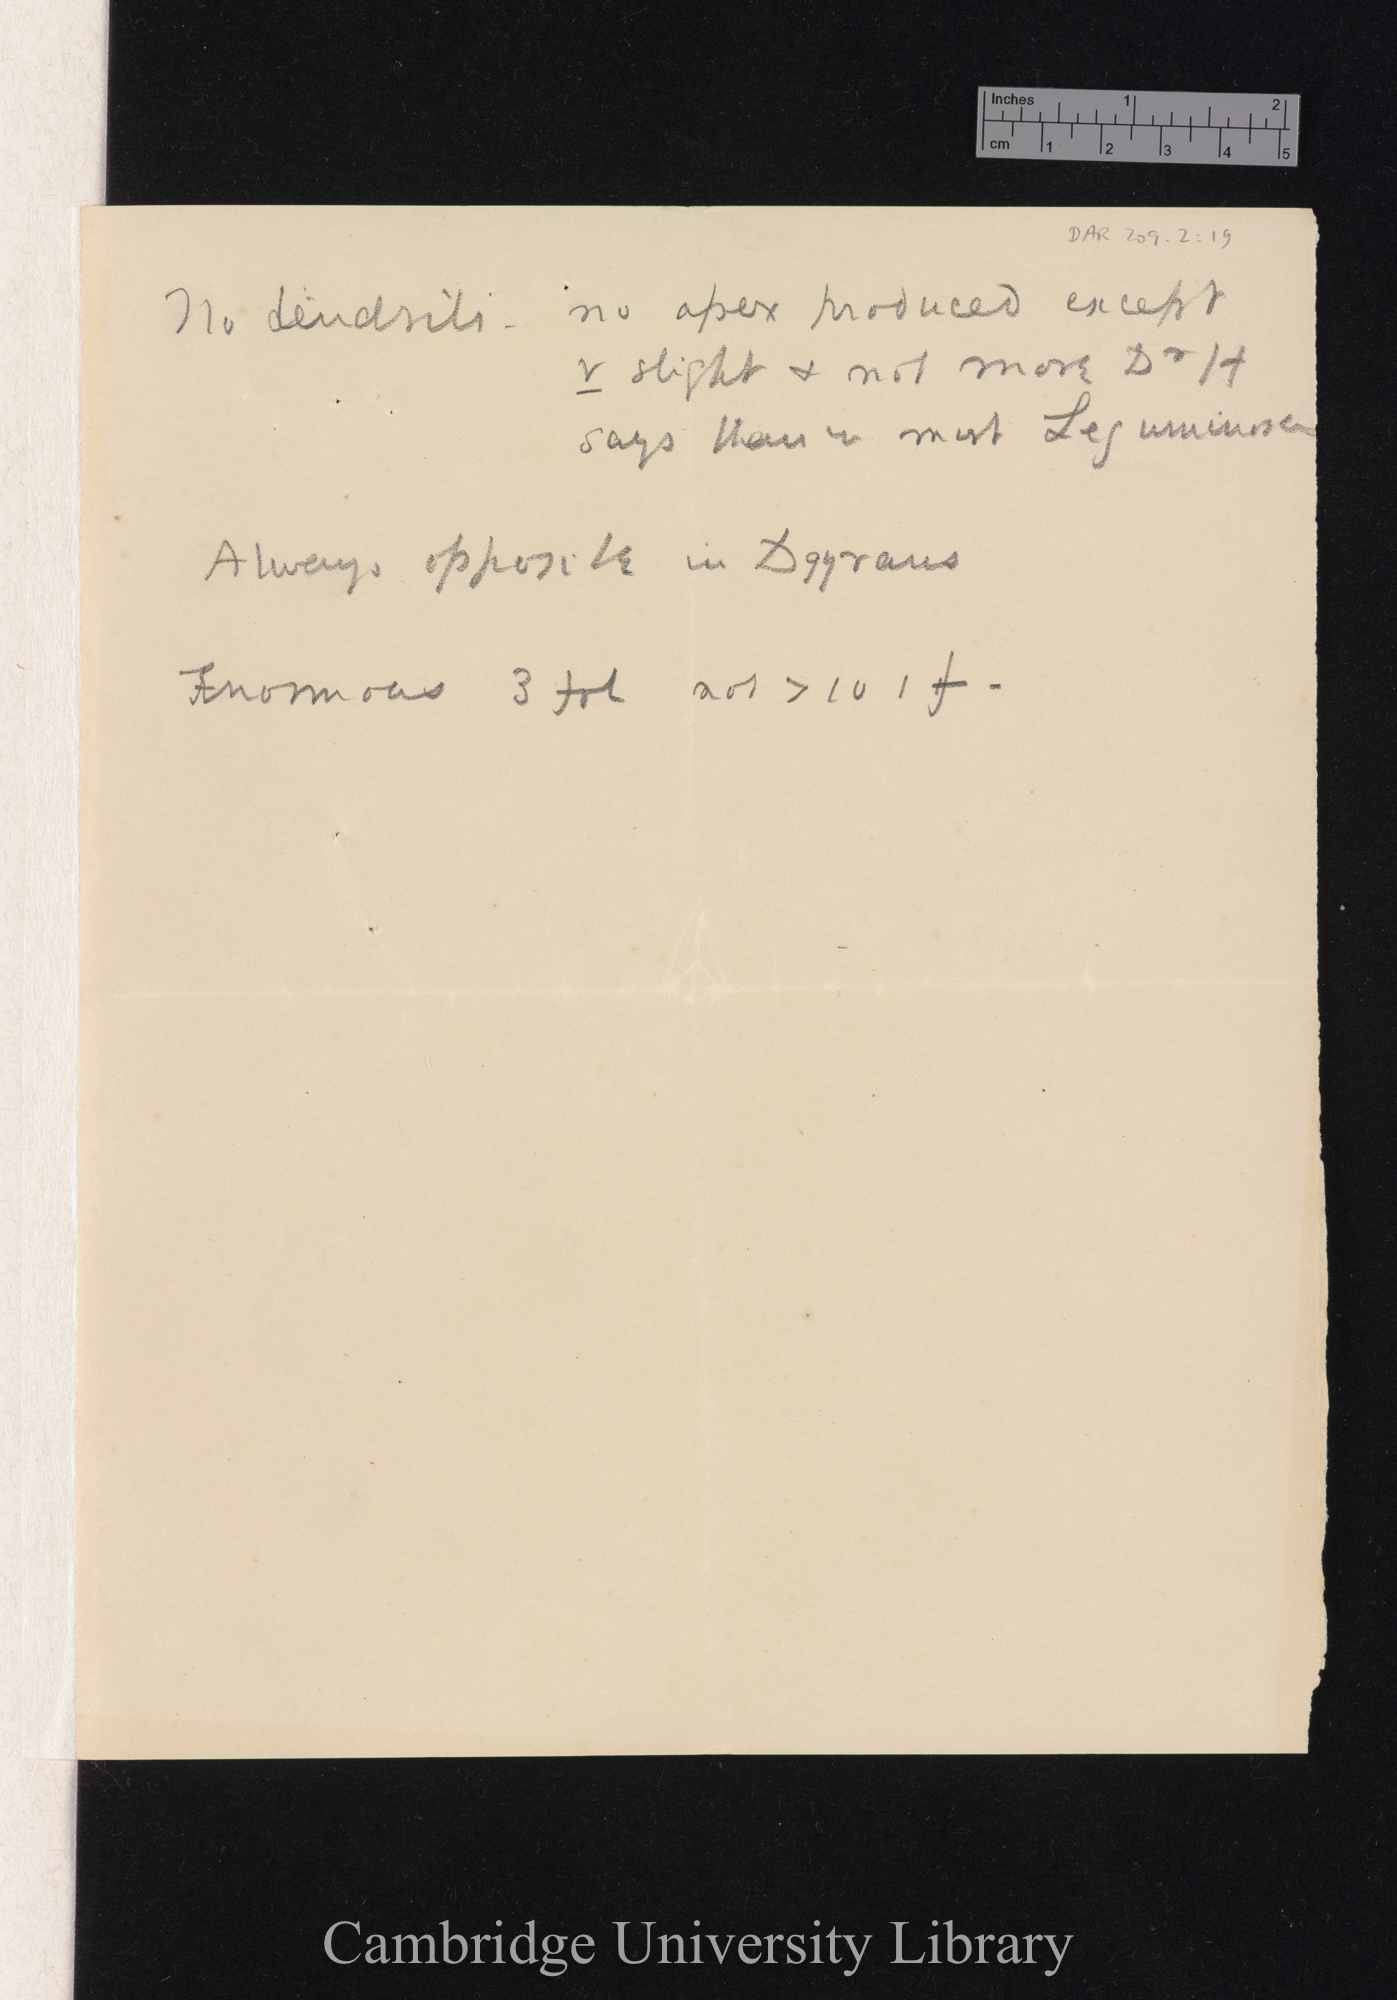 Inches 1 2
cm 1 2 3 4 5
DAR 209.2:19
No tendrils - no apex produced except
v slight & not more Dr H
says than in most Leguminosen
Always opposite in D gyrans
Enormous 3 fol not > 10 1 f -
Cambridge University Library